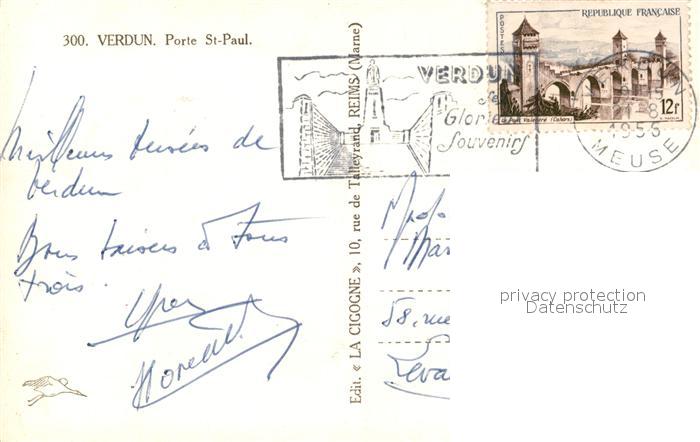 300. VERDUN. Porte St-Paul.
Meilleurs baisers de
Verdun
Bons baisers à Tous
trois.
Edit. « LA CIGOGNE », 10, rue de Talleyrand, REIMS (Marne)
VERDUN
Ses
Glorie
Souvenirs
POSTES
REPUBLIQUE FRANÇAISE
Pont Valentré (Cahors)
12f
1956
MEUSE
58, rue
Leva
privacy protection
Datenschutz